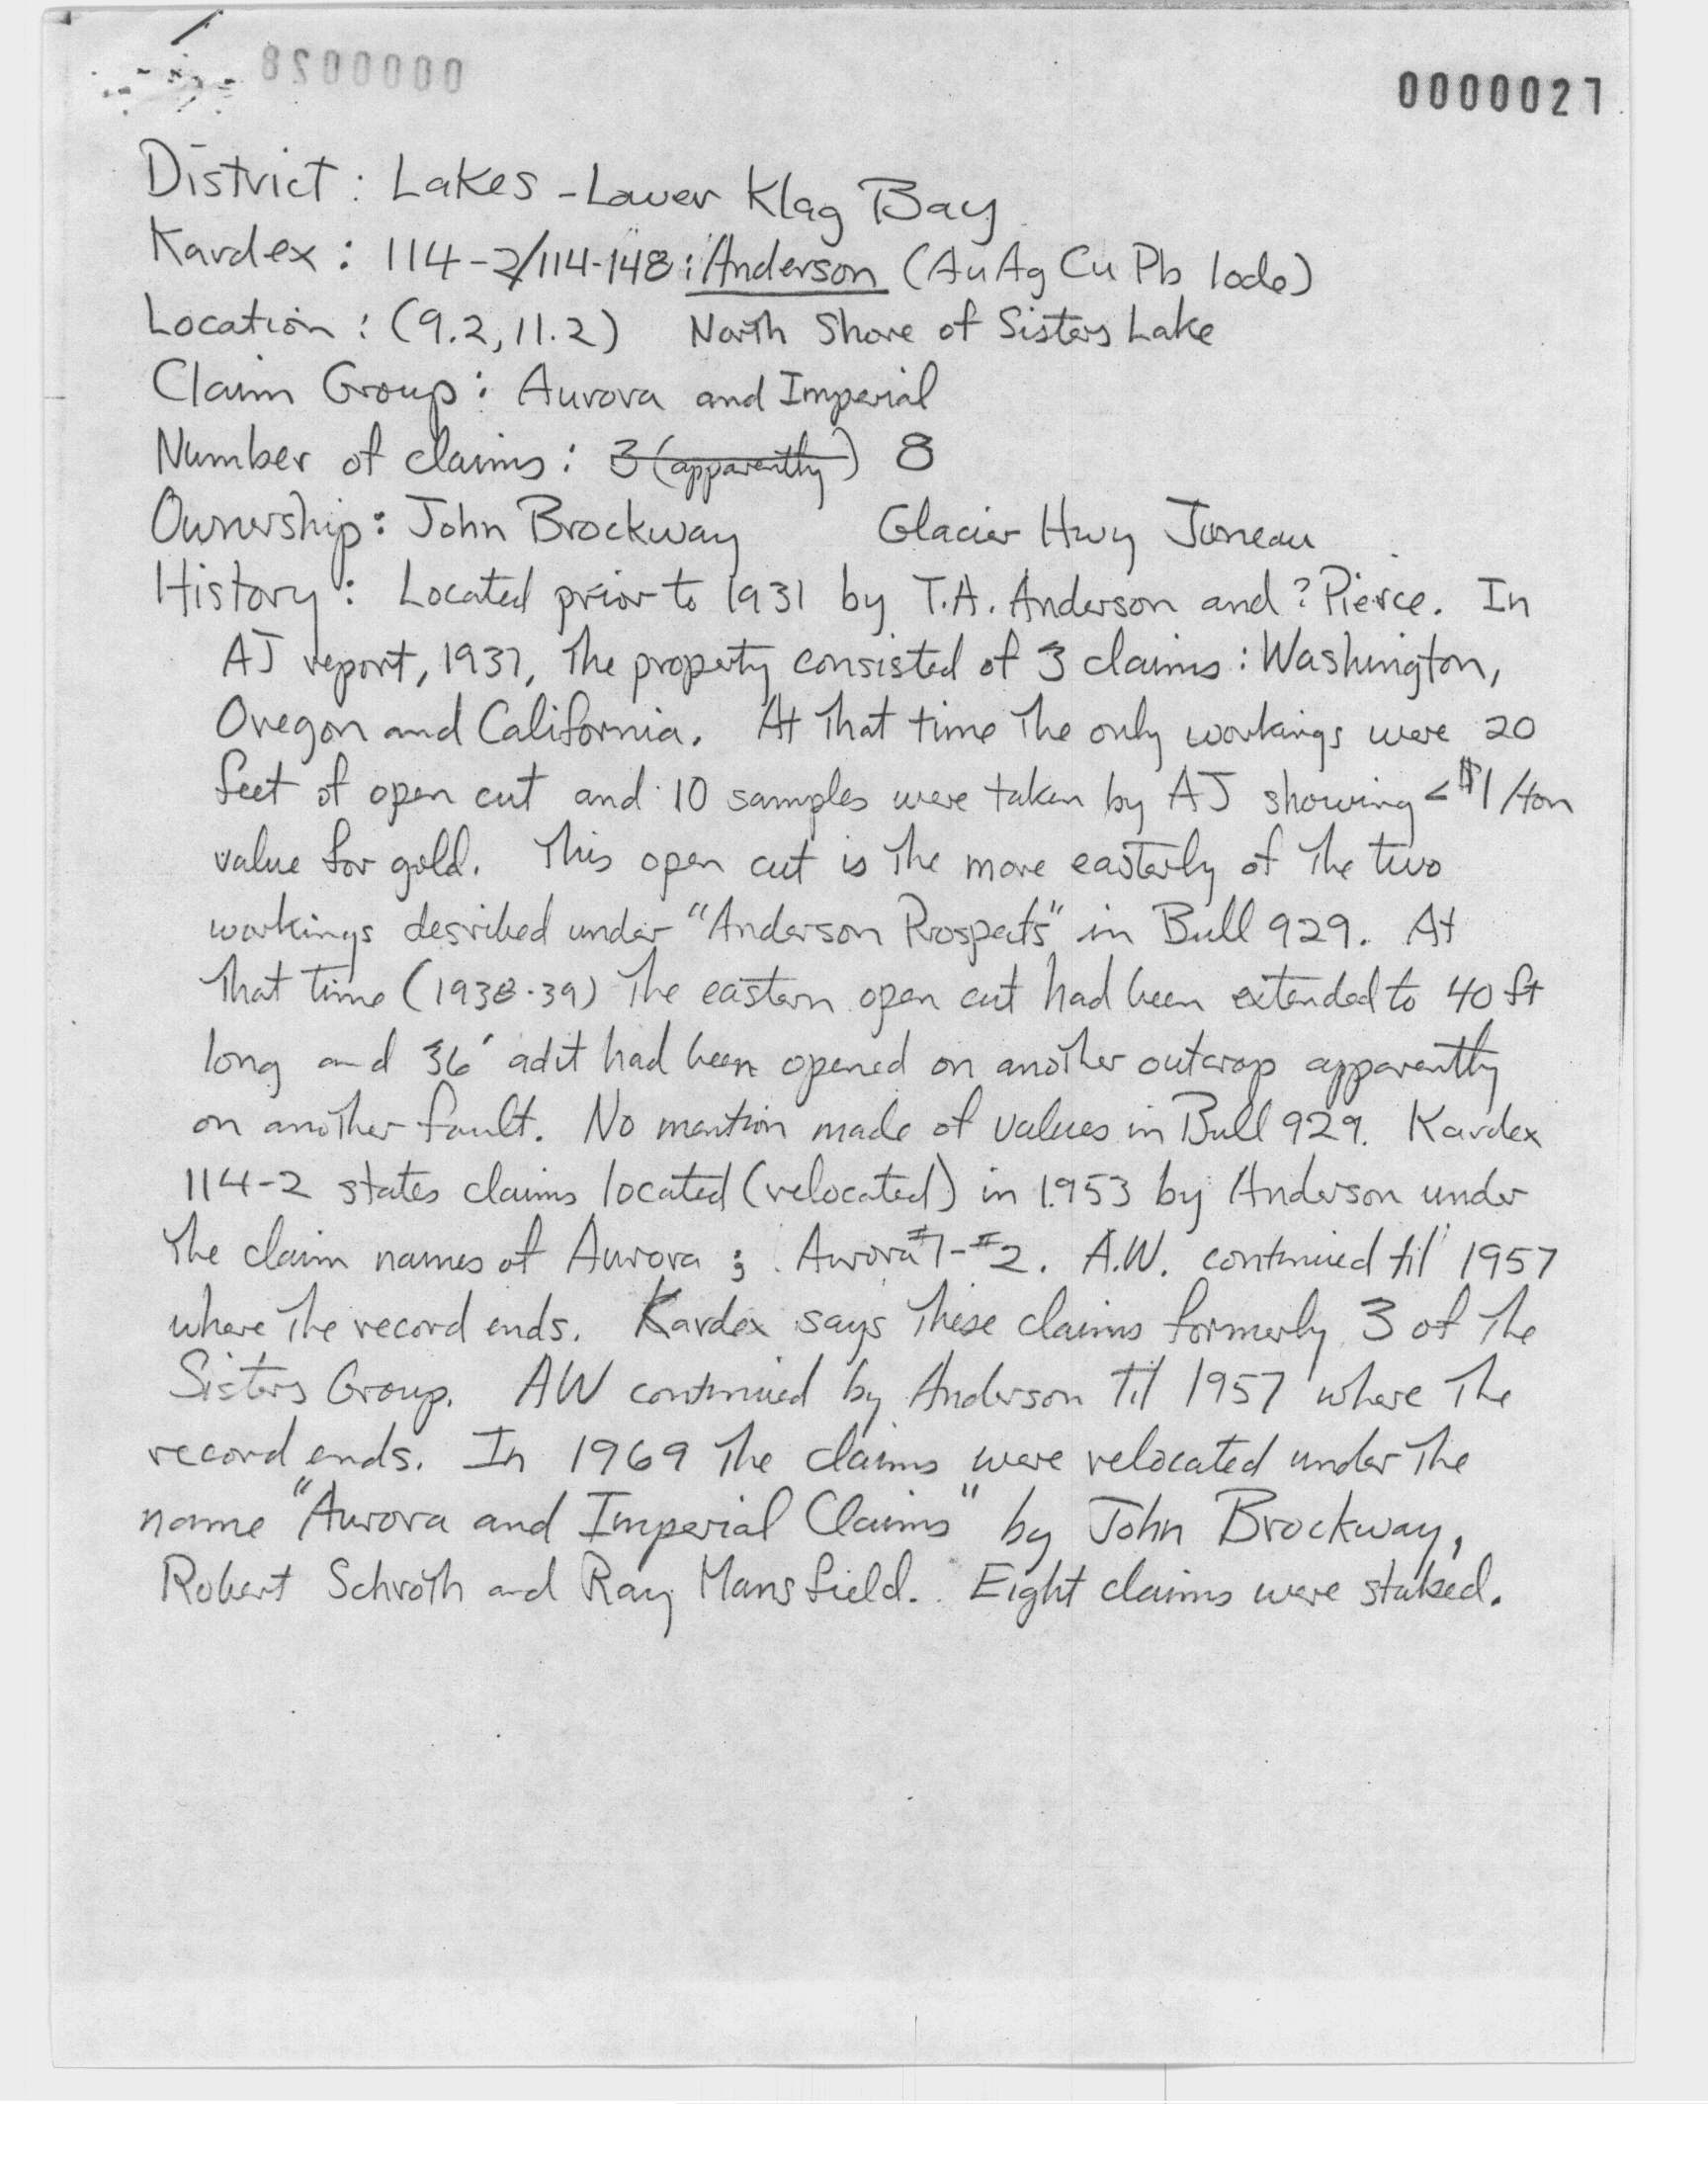 0000028
0000027
District: Lakes - Lower Klag Bay
Kardex: 114-2/114-148: Anderson (Au Ag Cu Pb lode)
Location: (9.2, 11.2) North Shore of Sisters Lake
Claim Group: Aurora and Imperial
Number of claims: 3 (apparently) 8
Ownership: John Brockway Glacier Hwy Juneau
History: Located prior to 1931 by T.A. Anderson and ? Pierce. In
AJ report, 1931, the property consisted of 3 claims: Washington,
Oregon and California. At that time the only workings were 20
feet of open cut and 10 samples were taken by AJ showing <$1/ton
value for gold. This open cut is the more easterly of the two
workings desribed under "Anderson Prospects" in Bull 929. At
that time (1938-39) the eastern open cut had been extended to 40 ft
long and 36' adit had been opened on another outcrop apparently
on another fault. No mention made of values in Bull 929. Kardex
114-2 states claims located (relocated) in 1953 by Anderson under
the claim names of Aurora ; Aurora #1-#2. A.W. continued til' 1957
where the record ends. Kardex says these claims formerly 3 of the
Sisters Group. AW continued by Anderson til 1957 where the
record ends. In 1969 the claims were relocated under the
name "Aurora and Imperial Claims" by John Brockway,
Robert Schroth and Ray Mansfield. Eight claims were staked.